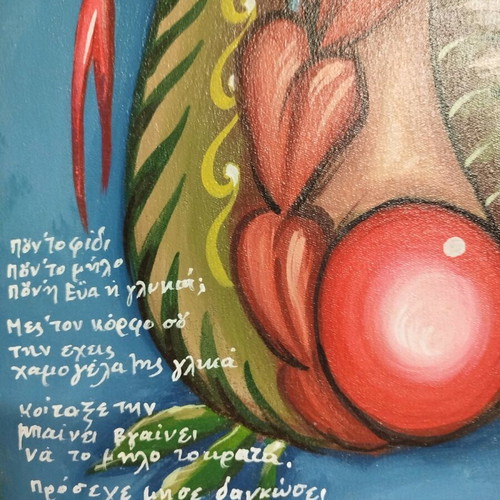 Πουν'το φίδι
Πουν'το μήλο
Πουν'η Εύα η γλυκιά;
Μες'τον κόρφο σου
την εχεις
χαμογέλα της γλικά
κοίταξε την
μπαίνει βγαίνει
νά το μήλο τοκρατα.
Πρόσεχε μησε δαγκώσει